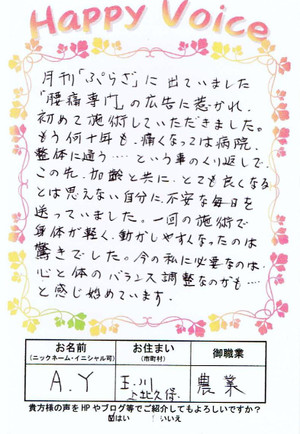 Happy Voice
月刊「ぷらざ」に出ていました
「腰痛専門」の広告に惹かれ、
初めて施術していただきました。
もう何十年も、痛くなっては病院、
整体に通う‥‥という事のくり返しで、
この先、加齢と共に、とても良くなる
とは思えない自分に、不安な毎日を
送っていました。一回の施術で
身体が軽く、動かしやすくなったのは
驚きでした。今の私に必要なのは、
心と体のバランス調整なのかも‥‥
と感じ始めています。
お名前 お住まい 御職業
(ニックネーム・イニシャル可) (市町村)
A.Y 玉川 上北久保 農業
貴方様の声をHPやブログ等でご紹介してもよろしいですか?
はい いいえ